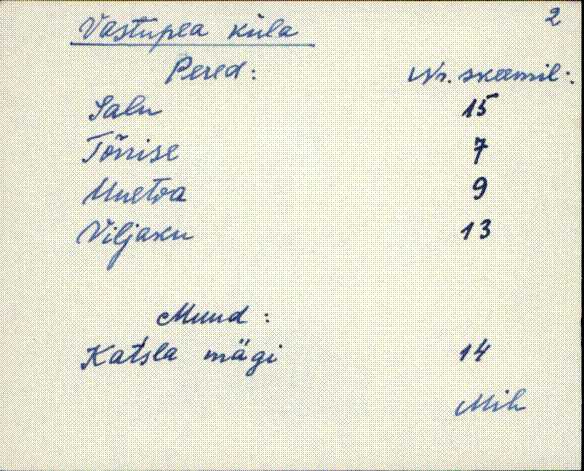 2
Vastupea küla
Pered: Nr. skeemil:
Salu 15
Tõrrise 7
Uuetoa 9
Viljaku 13
Muud:
Katsla mägi 14
Mih